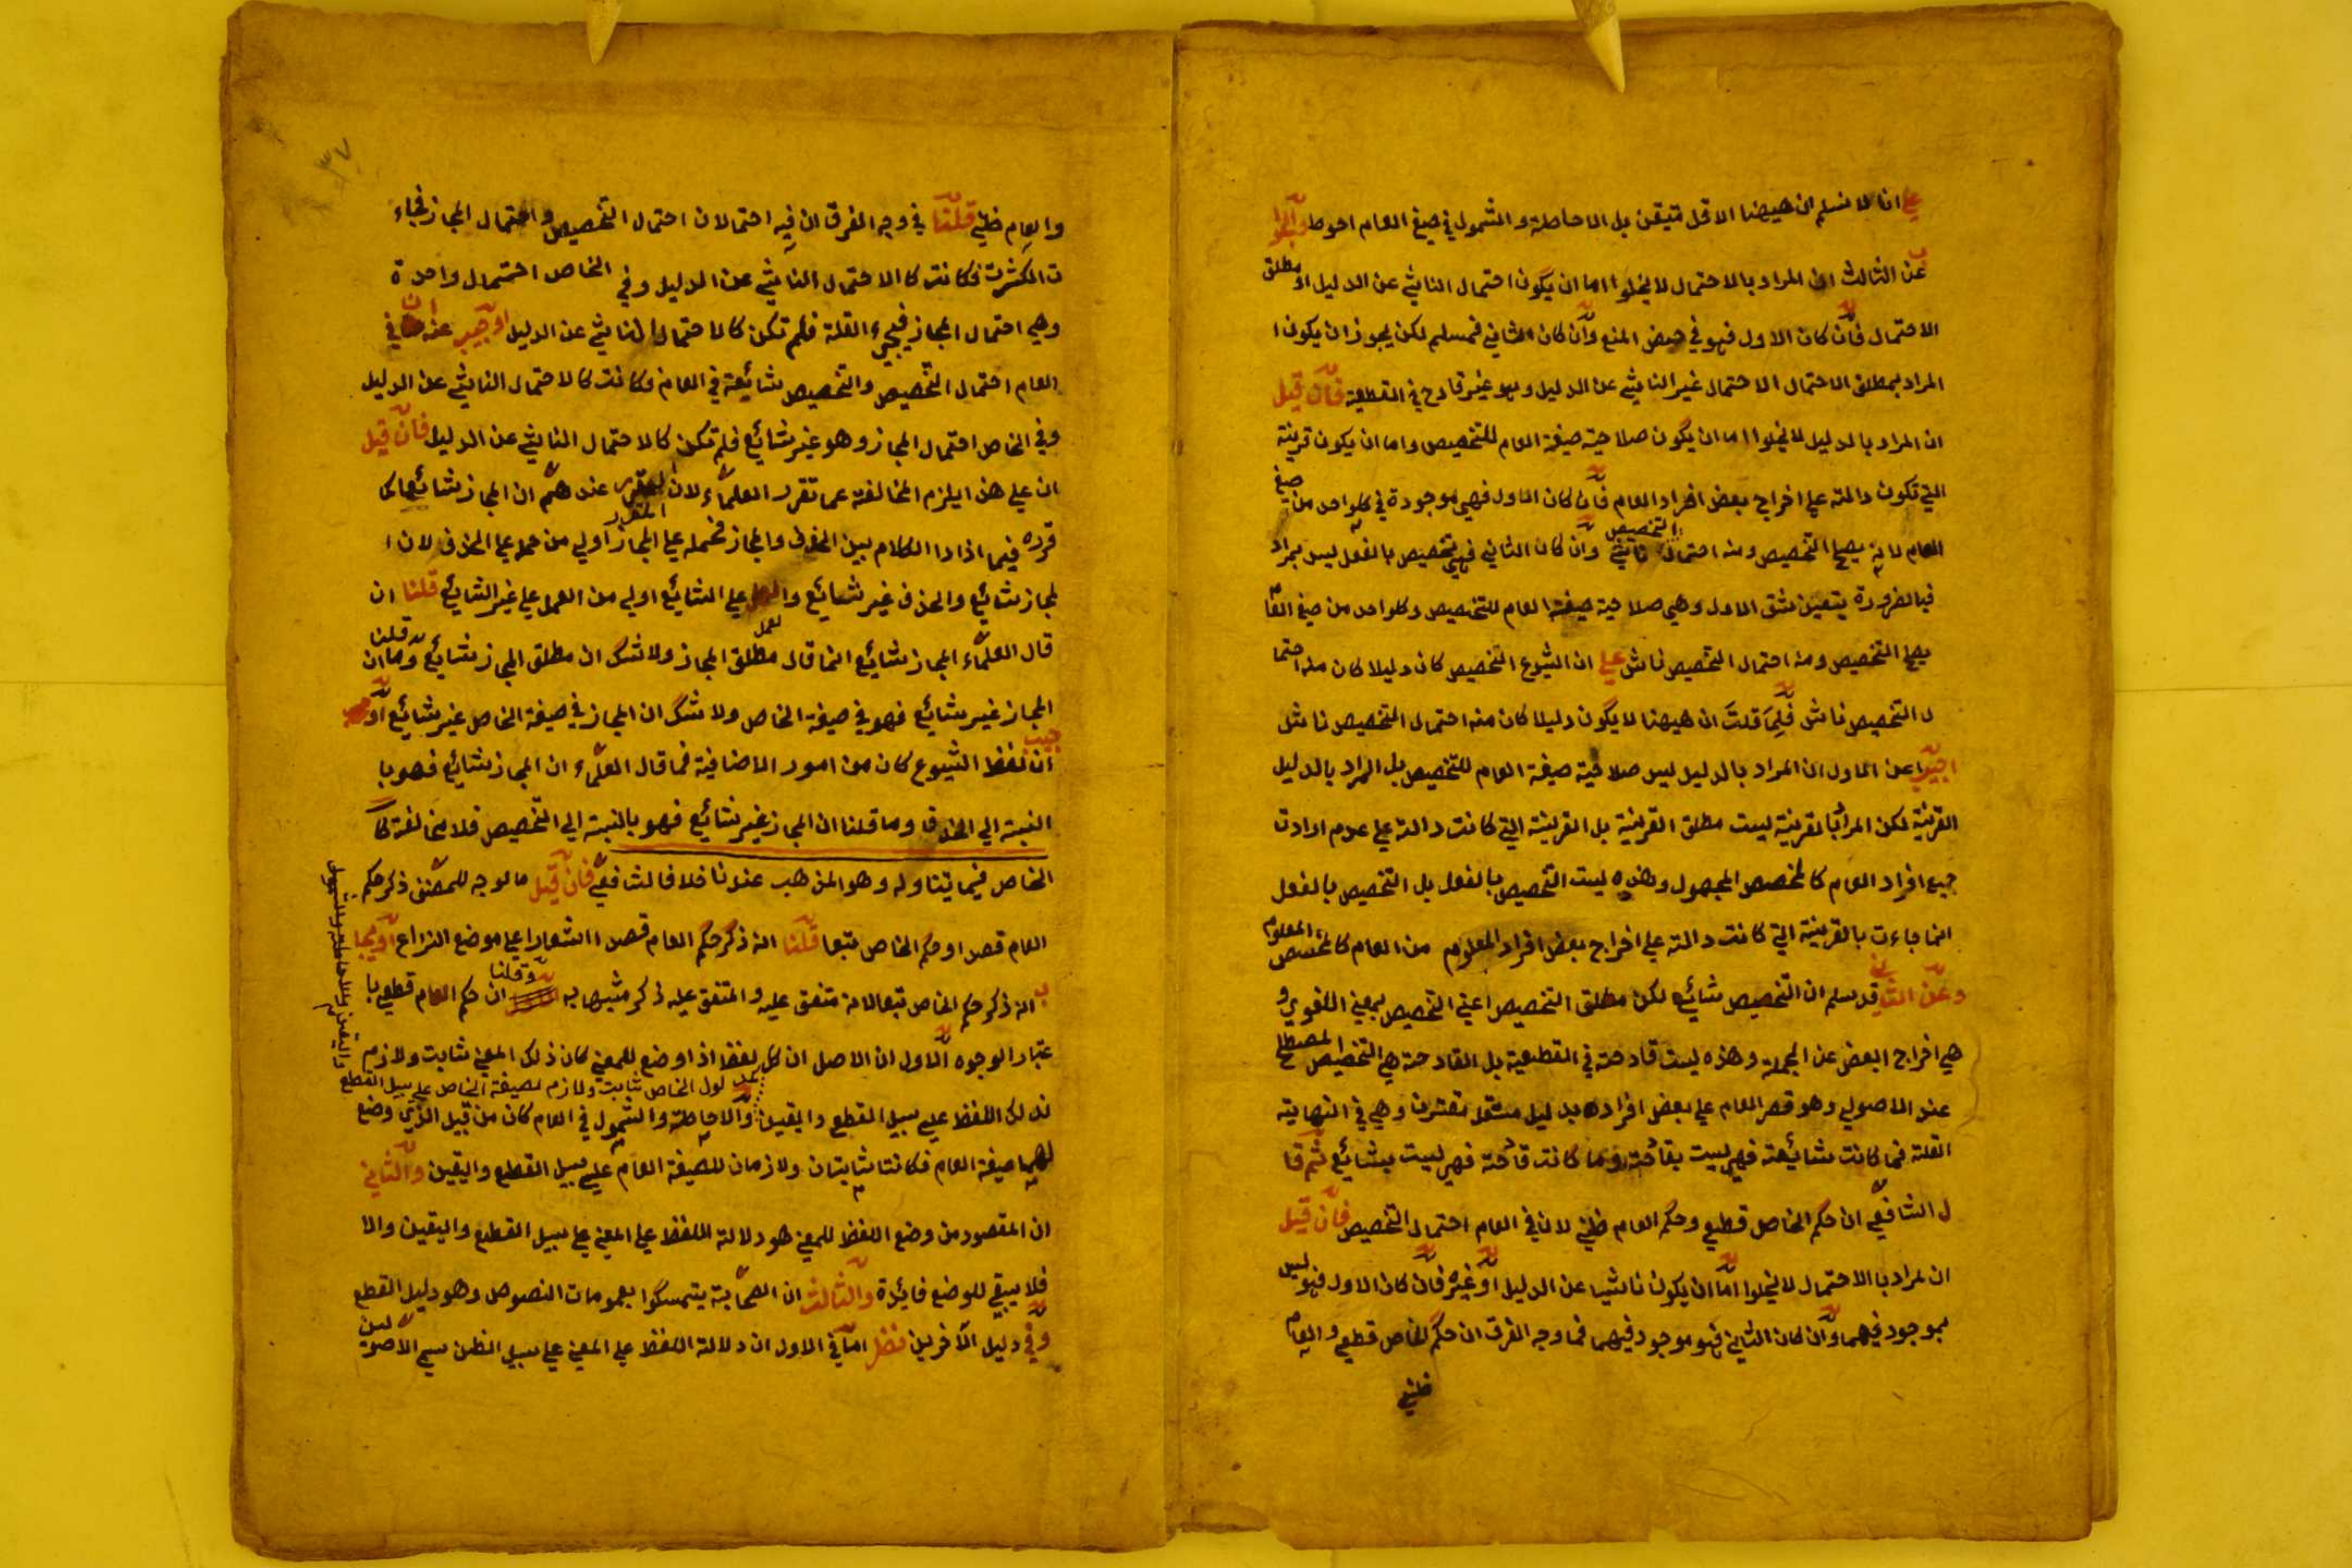 علي انا لا نسلم ان هيهنا الاقل متيقن بل الاحاطة والشمول في صيغ العام احوط والجوا
ب عن الثالث ان المراد بالاحتمال لا يخلوا اما ان يكون احتمال الناشي عن الدليل او مطلق
الاحتمال فان كان الاول فهو في حيض المنع وان كان الثاني فمسلم لكن يجوز ان يكون ا
المراد بمطلق الاحتمال الاحتمال غير الناشي عن الدليل وهو غير قادح في القطعية فان قيل
ان المراد بالدليل لا يخلوا اما ان يكون صلاحية صيغة العام للتخصيص واما ان يكون قرينة
التي تكون دالة علي اخراج بعض افراد العام فان كان الاول فهي موجودة في كلواحد من صيغ
العام لانه يصح التخصيص ومنه احتمال التخصيص ناشي وان كان الثاني فهي تخصيص بالفعل ليس بمراد
فبالضرورة يتعين شق الاول وهي صلاحية صيغة العام للتخصيص وكلواحد من صيغ العام
يصح التخصيص ومنه احتمال التخصيص ناش علي ان الشيوع التخصيص كان دليلا كان منه احتما
ل التخصيص ناش فلم قلت ان هيهنا لا يكون دليلا كان منه احتمال التخصيص ناش
اجيب عن الاول ان المراد بالدليل ليس صلاحية صيغة العام للتخصيص بل المراد بالدليل
القرينة لكن المراد بالقرينة ليست مطلق القرينة بل القرينة التي كانت دالة علي عدم ارادت
جميع افراد العام كالمخصص المجهول وهذه ليست التخصيص بالفعل بل التخصيص بالفعل
انما جاءت بالقرينة التي كانت دالة علي اخراج بعض افراد المعلوم من العام كالمخصص المعلوم
وعن الثاني قد سلم ان التخصيص شائع لكن مطلق التخصيص اعني التخصيص بمعني اللغوي و
هي اخراج البعض عن الجملة وهذه ليست قادحة في القطعية بل القادحة هي التخصيص المصطلح
عند الاصولي وهو قصر العام علي بعض افراده بدليل مستقل مقترن وهي في النهاية
القلة فما كانت شائعة فهي ليست بقادحة وما كانت قادحة فهي ليست بشائع ثم قا
ل الشافعي ان حكم الخاص قطعي وحكم العام ظني لان في العام احتمال التخصيص فان قيل
ان لمراد بالاحتمال لا يخلوا اما ان يكون ناشيا عن الدليل او غيره فان كان الاول فهو ليس
بموجود فيهما وان كان الثاني فهو موجود فيهما فما وجه الفرق ان حكم الخاص قطعي والعام
ظني
٣٧
والعام ظني قلنا في وجه الفرق ان فيه احتمالان احتمال التخصيص واحتمال المجاز فجاء
ت الكثرت فكانت كالاحتمال الناشي عن الدليل وفي الخاص احتمال واحدة
وهي احتمال المجاز فيجيء القلة فلم تكن كالاحتمال الناشي عن الدليل او جيب عنه ان في
العام احتمال التخصيص والتخصيص شائعة في العام فكانت كالاحتمال الناشي عن الدليل
وفي الخاص احتمال المجاز وهو غير شائع فلم تكن كالاحتمال الناشي عن الدليل فان قيل
ان علي هذا يلزم المخالفة عما تقرر العلماء لان المقرر عندهم ان المجاز شائع كما
قرره فيما اذا دا الكلام بين الحذف والمجاز فحمله علي المجاز اولي من حمل علي الحذف لان ا
لمجاز شائع والحذف غير شائع والعمل علي الشائع اولي من العمل علي غير الشائع قلنا ان
قال العلماء المجاز شائع انما قال مطلق المجاز ولا شك ان مطلق المجاز شائع وما قلنا ان
المجاز غير شائع فهو في صيغة الخاص ولا شك ان المجاز في صيغة الخاص غير شائع او
جيب ان لفظ الشيوع كان من امور الاضافية فما قال العلماء ان المجاز شائع فهو با
لنسبة الي الحذف وما قلنا ان المجاز غير شائع فهو بالنسبة الي التخصيص فلا مخالفة كا
الخاص فيما يتناوله وهو المذهب عندنا خلافا لشافعي فان قيل ما لوجه للمصنف ذكر حكم
العام قصدا وحكم الخاص تبعا قلنا انه ذكر حكم العام قصدا اشعارا علي موضع النزاع او يجا
ب انه ذكر حكم الخاص تبعا لانه متفق عليه والمتفق عليه ذكر مشبها به وقلنا ان حكم العام قطعي با
عتبار الوجوه الاول ان الاصل ان كل لفظ اذا وضع للمعني كان ذلك المعني ثابت ولازم
مدلول الخاص ثابت ولازم لصيغة الخاص علي سبيل القطع
واليقين والاحاطة والشمول
لذلك اللفظ علي سبيل القطع واليقين والاحاطة والشمول في العام كان من قبيل الذي وضع
لهما صيغة العام فكانتا ثابتان ولازمان للصيغة العام علي سبيل القطع واليقين والثاني
ان المقصود من وضع اللفظ للمعني هو دلالة اللفظ علي المعني علي سبيل القطع واليقين والا
فلا يبقي للوضع فائدة والثالث ان الصحابة يتمسكوا بعمومات النصوص وهو دليل القطع
وفي دليل الآخرين نظر اما في الاول ان دلالة اللفظ علي المعني علي سبيل الظن